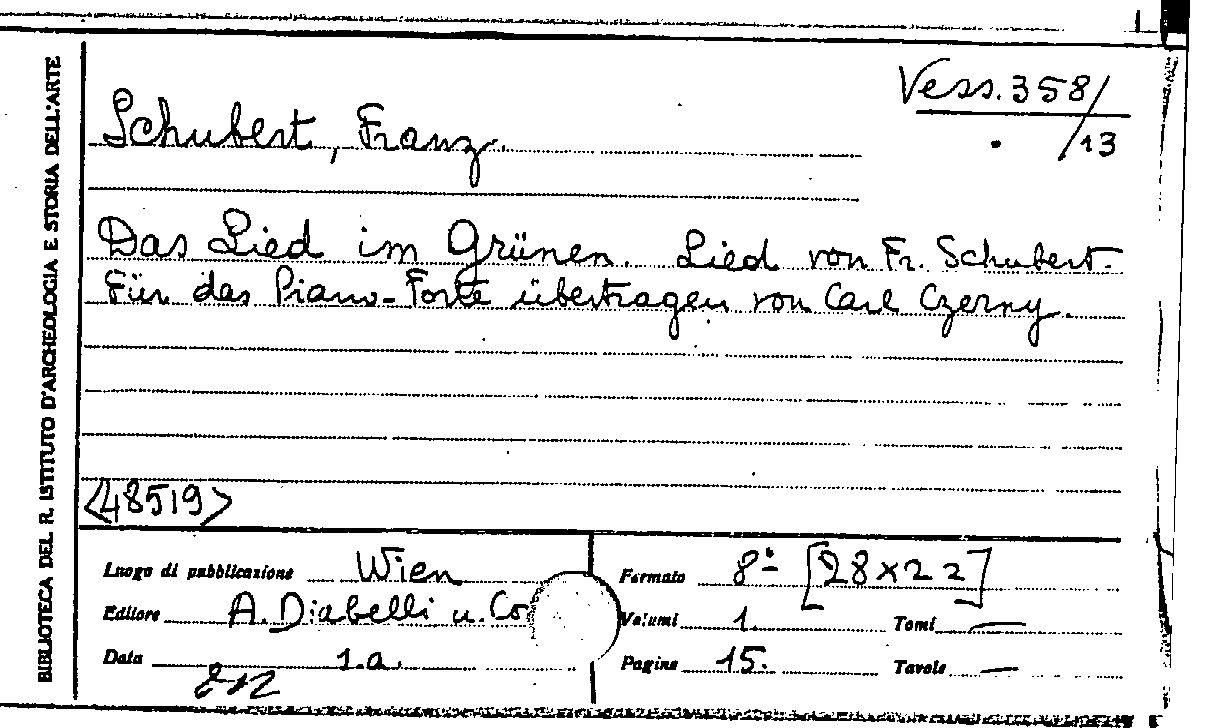 BIBLIOTECA DEL R. ISTITUTO D'ARCHEOLOGIA E STORIA DELL'ARTE
Vess. 358/
/13
Schubert, Franz.
Das Lied im Grünen. Lied von Fr. Schubert.
Für das Piano-Forte übertragen von Carl Czerny.
<48519>
Luogo di pubblicazione Wien
Editore A. Diabelli u. Co
Data s.a.
Formato 8º [28x22]
Volumi 1. Tomi —
Pagine 15. Tavole —